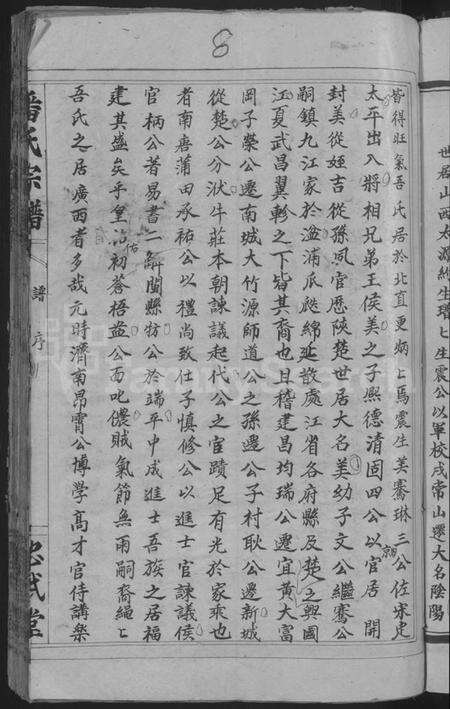 8
世居山西太源純生璔璔生震公以軍校戍常山遷大名陰陽
皆得旺氣吾氏居於北直更炳炳焉震生美騫琳三公佐宋定
太平出入將相兄弟王侯美之子熙德清固四公以官居開
封美從姪吉從孫夙官歷陝楚世居大名美幼子文公繼騫公
嗣鎮九江家於湓浦瓜瓞綿延散處江省各府縣及楚之興國
江夏武昌翼軫之下皆其裔也且稽建昌均瑞公遷宜黃大富
岡子榮公遷南城大竹源師道公之孫還公子村耿公遷新城
從楚公分派牛莊本朝諫議起代公之宦蹟足有光於家乘也
者南唐蒲田承祐公以禮尚致仕子慎修公以進士官諫議侯
官柄公著易書二解閩縣枋公於端平中成進士吾族之居福
建其盛矣乎皇祐初蒼梧益公面叱儂賊氣節無兩嗣裔繩繩
吾氏之居廣西者多哉元時濟南昂霄公博學高才官侍講樂
潘氏宗譜
譜序
忠武堂